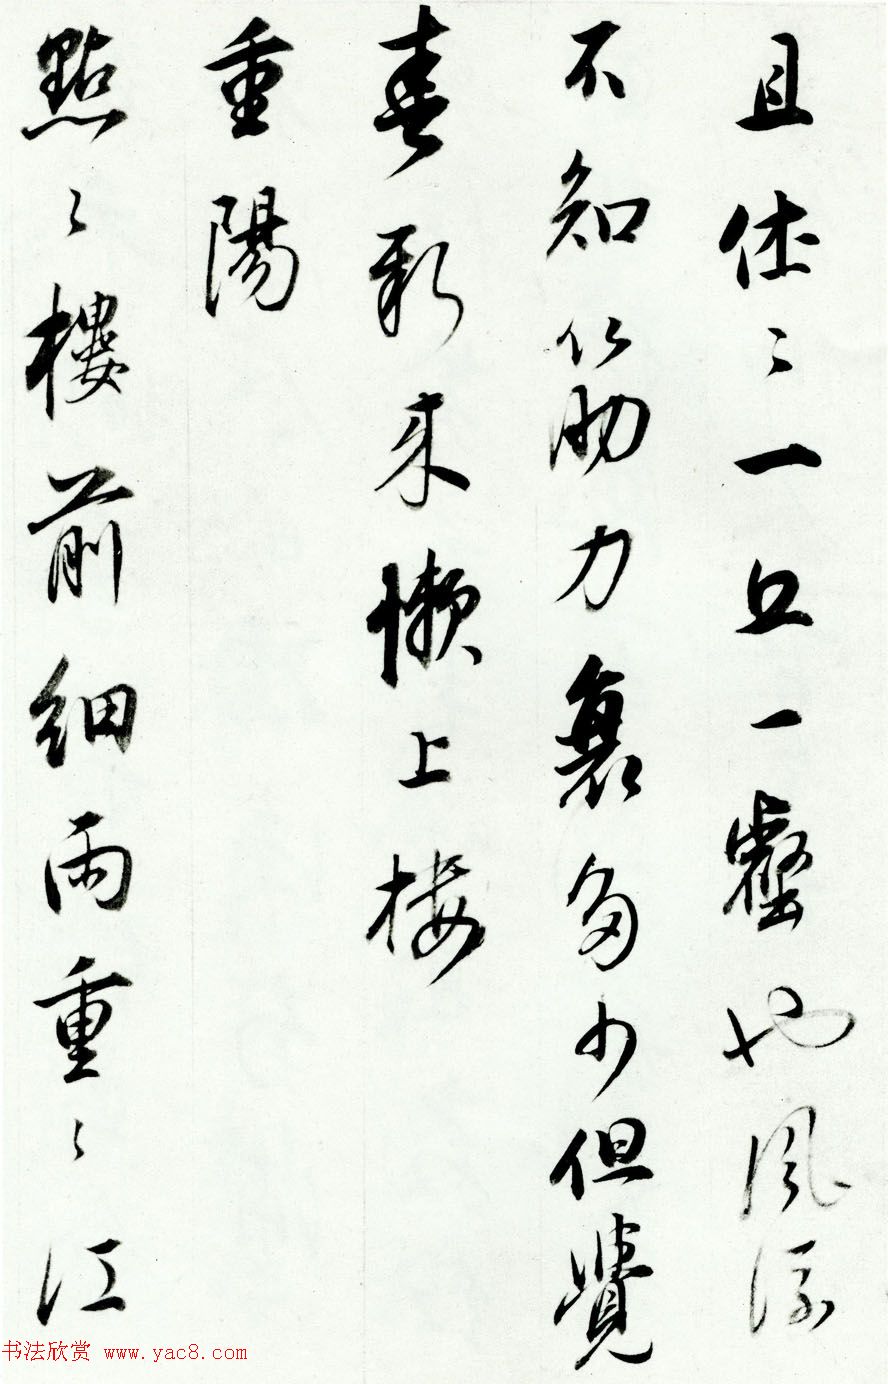 且休〻一丘一壑也風流
不知筋力衰多少但覺
新来懶上樓
重陽
點〻樓前細雨重〻江
书法欣赏 www.yac8.com